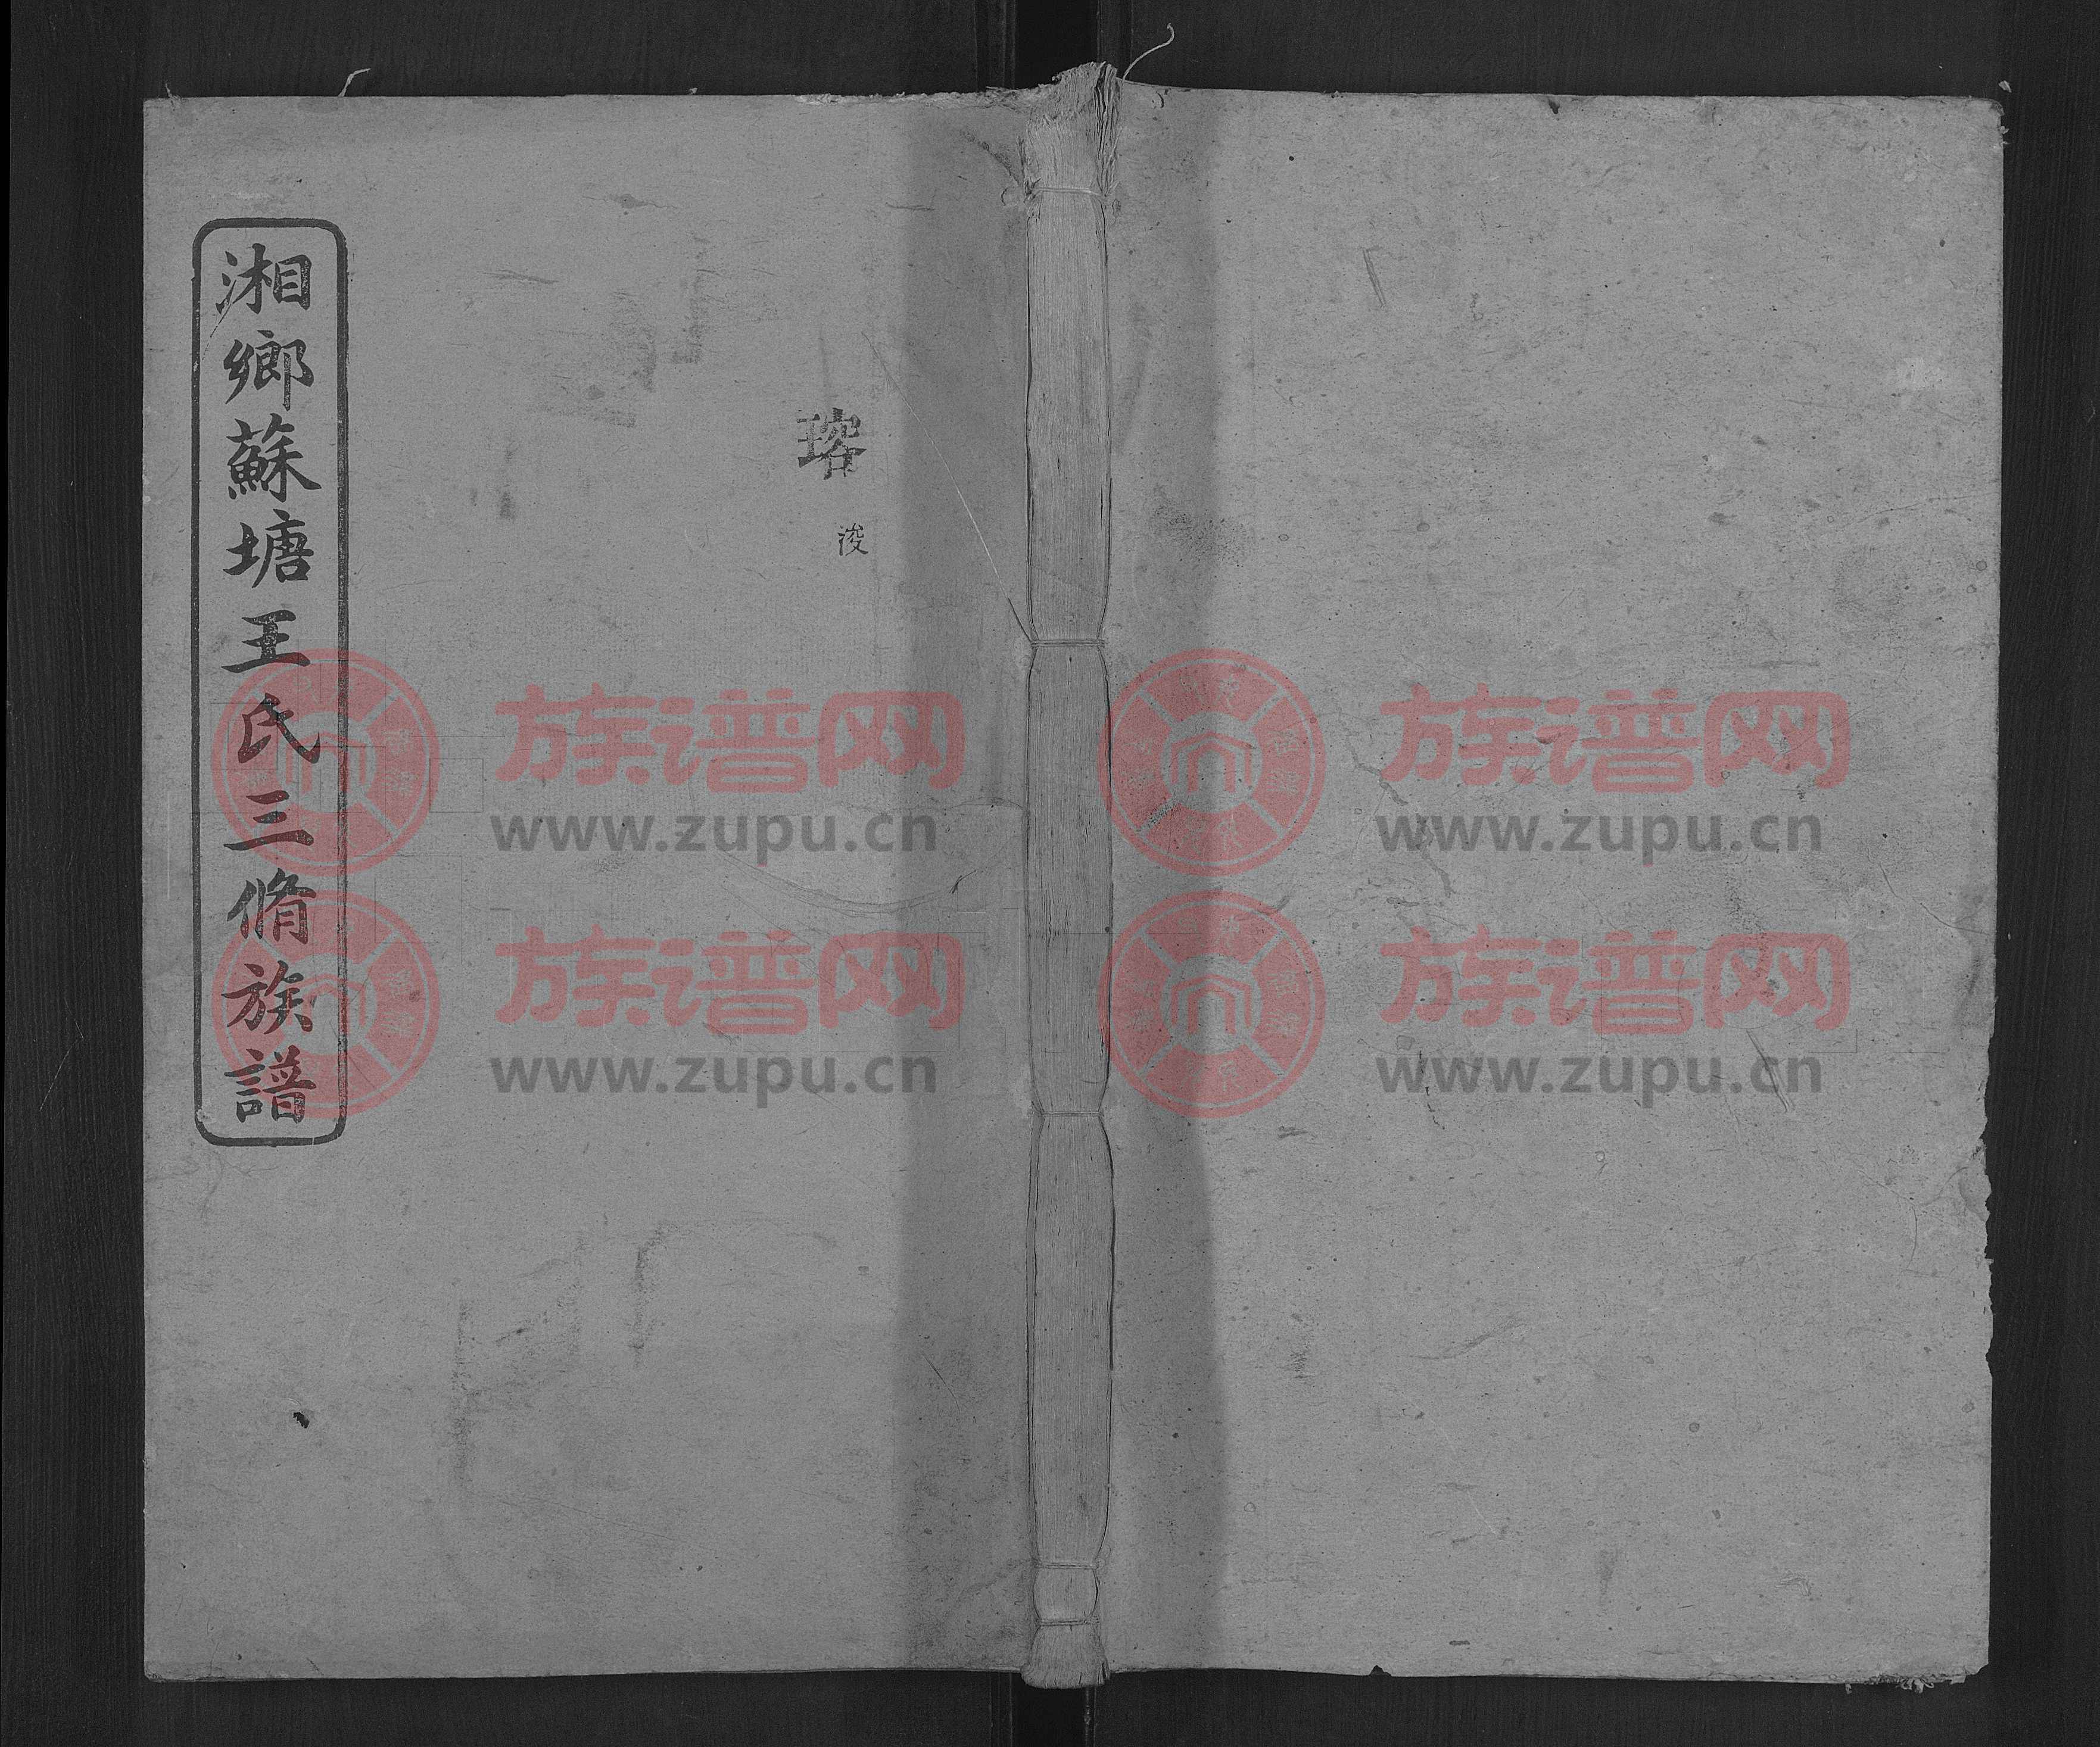 瑢
浚
湘鄉蘇塘王氏三脩族譜
族谱网
www.zupu.cn
族谱网
www.zupu.cn
族谱网
www.zupu.cn
族谱网
www.zupu.cn